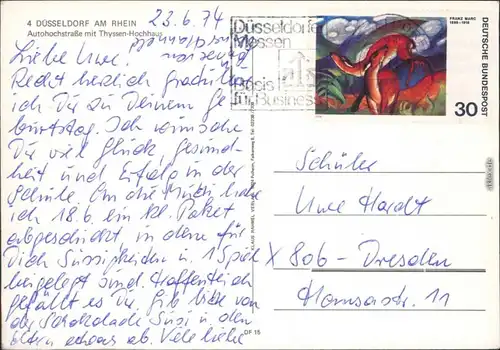 4 DÜSSELDORF AM RHEIN
Autohochstraße mit Thyssen-Hochhaus
23.6.74
Liebe Uwe,
Recht herzlich gratuliere
ich Dir zu Deinem Ge-
burtstag. Ich wünsche
Dir viel Glück, Gesund-
heit und Erfolg in der
Schule. An die Mutti habe
ich 18.6. ein kl. Paket
abgeschickt, in dem für
Dich Süssigkeiten u. 1 Spiel
beigelegt sind. Hoffentlich
gefällt es Dir. Gib bitte von
der Schokolade Susi u. den
Eltern etwas ab. Viele liebe
Düsseldorfer
Messen
Basis
für Business
FRANZ MARC
1880-1916
DEUTSCHE BUNDESPOST
30
DF 15
Schüler
Uwe Hardt
X 806 - Dresden
11